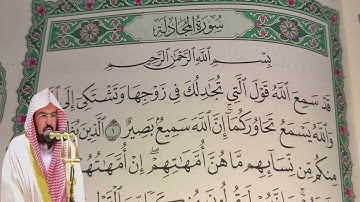 سُورَةُ المُجَادلة
بِسْمِ اللَّهِ الرَّحْمَٰنِ الرَّحِيمِ
قَدْ سَمِعَ اللَّهُ قَوْلَ الَّتِي تُجَٰدِلُكَ فِي زَوْجِهَا وَتَشْتَكِي إِلَى
وَاللَّهُ يَسْمَعُ تَحَاوُرَكُمَا إِنَّ اللَّهَ سَمِيعٌ بَصِيرٌ ١ الَّذِينَ
مِنكُم مِّن نِّسَائِهِم مَّا هُنَّ أُمَّهَٰتِهِمْ إِنْ أُمَّهَٰتُهُمْ